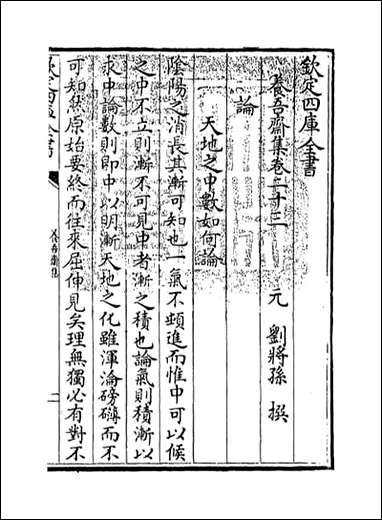 欽定四庫全書
養吾齋集卷二十二
元 劉將孫 撰
論
天地之中數如何論
陰陽之消長其漸可知也一氣不頓進而惟中可以候
之中不立則漸不可見中者漸之積也論氣則積漸以
求中論數則即中以明漸天地之化雖渾淪磅礴而不
可知然原始要終而往來屈伸見矣理無獨必有對不
養吾齋集
二